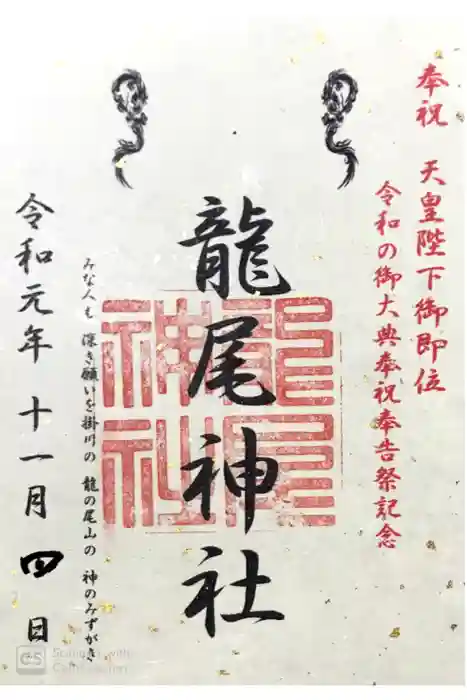 奉祝 天皇陛下御即位
令和の御大典奉祝奉告祭記念
龍尾神社
龍尾神社
みな人も 深き願いを掛川の 龍の尾山の 神のみずがき
令和元年 十一月 四 日
CS Scanned with
CamScanner